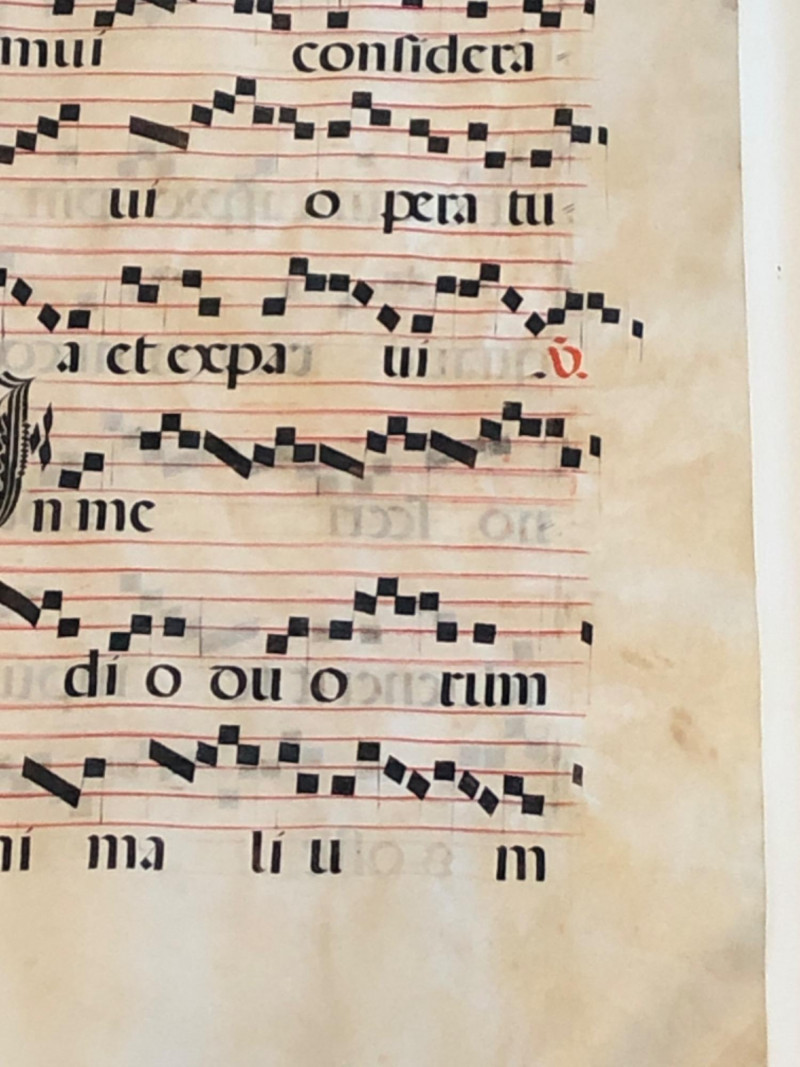 mui considera-
ui o pera tu-
a et expa ui. v.
n me
di o du o rum
ni ma li u m